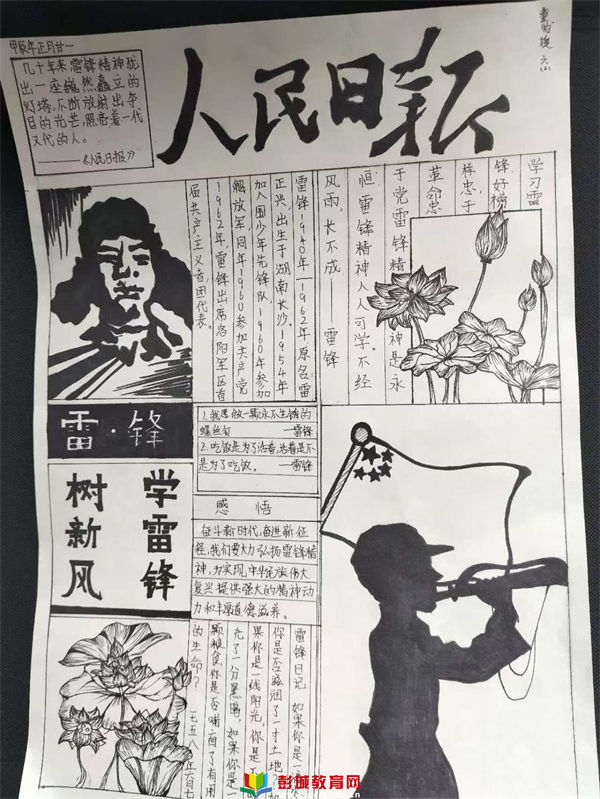 甲辰年正月廿一
几十年来雷锋精神犹
出一座巍然矗立的
灯塔,不断放射出夺
目的光芒,照亮着一代
又代的人。
——《人民日报》
人民日报
六(2)
学习雷
锋好榜
样忠于
革命忠
于党雷锋精神是永
恒雷锋精神人人可学不经
风雨,长不成——雷锋
雷锋1940年—1962年原名雷
正兴,出生于湖南长沙。1954年
加入国少年先锋队,1960年参加
解放军,同年1960参加共产党
1962年,雷锋出席洛阳军区首
届共产主义青团代表。
雷·锋
1.我愿做一颗永不生锈的
螺丝钉 —雷锋
2.吃饭是为了活着,活着是不
是为了吃饭。 —雷锋
学雷锋
树新风
感悟
奋斗新时代,奋进新征
程,我们要大力弘扬雷锋精
神,为实现中华民族伟大
复兴提供强大的精神动
力和丰厚道德滋养。
雷锋日记 如果你是一
你是否滋润了一寸土地?如
果你是一线阳光,你是否
亮了一分黑暗,如果你是一
颗粮食,你是否哺育了有用
的生命?
彭城教育网